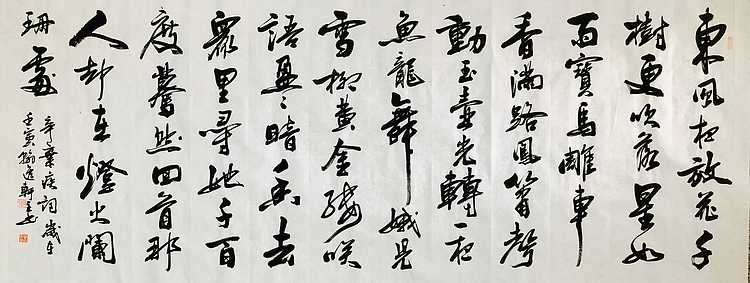 東風夜放花千
樹更吹落星如
雨寶馬雕車
香滿路鳳簫聲
動玉壺光轉一夜
魚龍舞蛾兒
雪柳黃金縷咲
語盈〻暗香去
眾里尋她千百
度驀然回首那
人却在燈火闌
珊處
辛棄疾詞歲在
壬寅逸軒